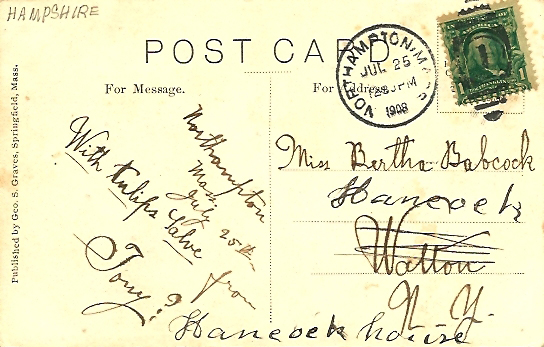 HAMPSHIRE
POST CARD
For Message.
For Address.
Published by Geo. S. Graves, Springfield, Mass.
NORTHAMPTON, MASS.
JUL 25
1908
1
Northampton
Mass
July 25th
With tulips Salve from
Tony?
Miss Bertha Babcock
Hancock
Walton
N. Y.
Hancock house